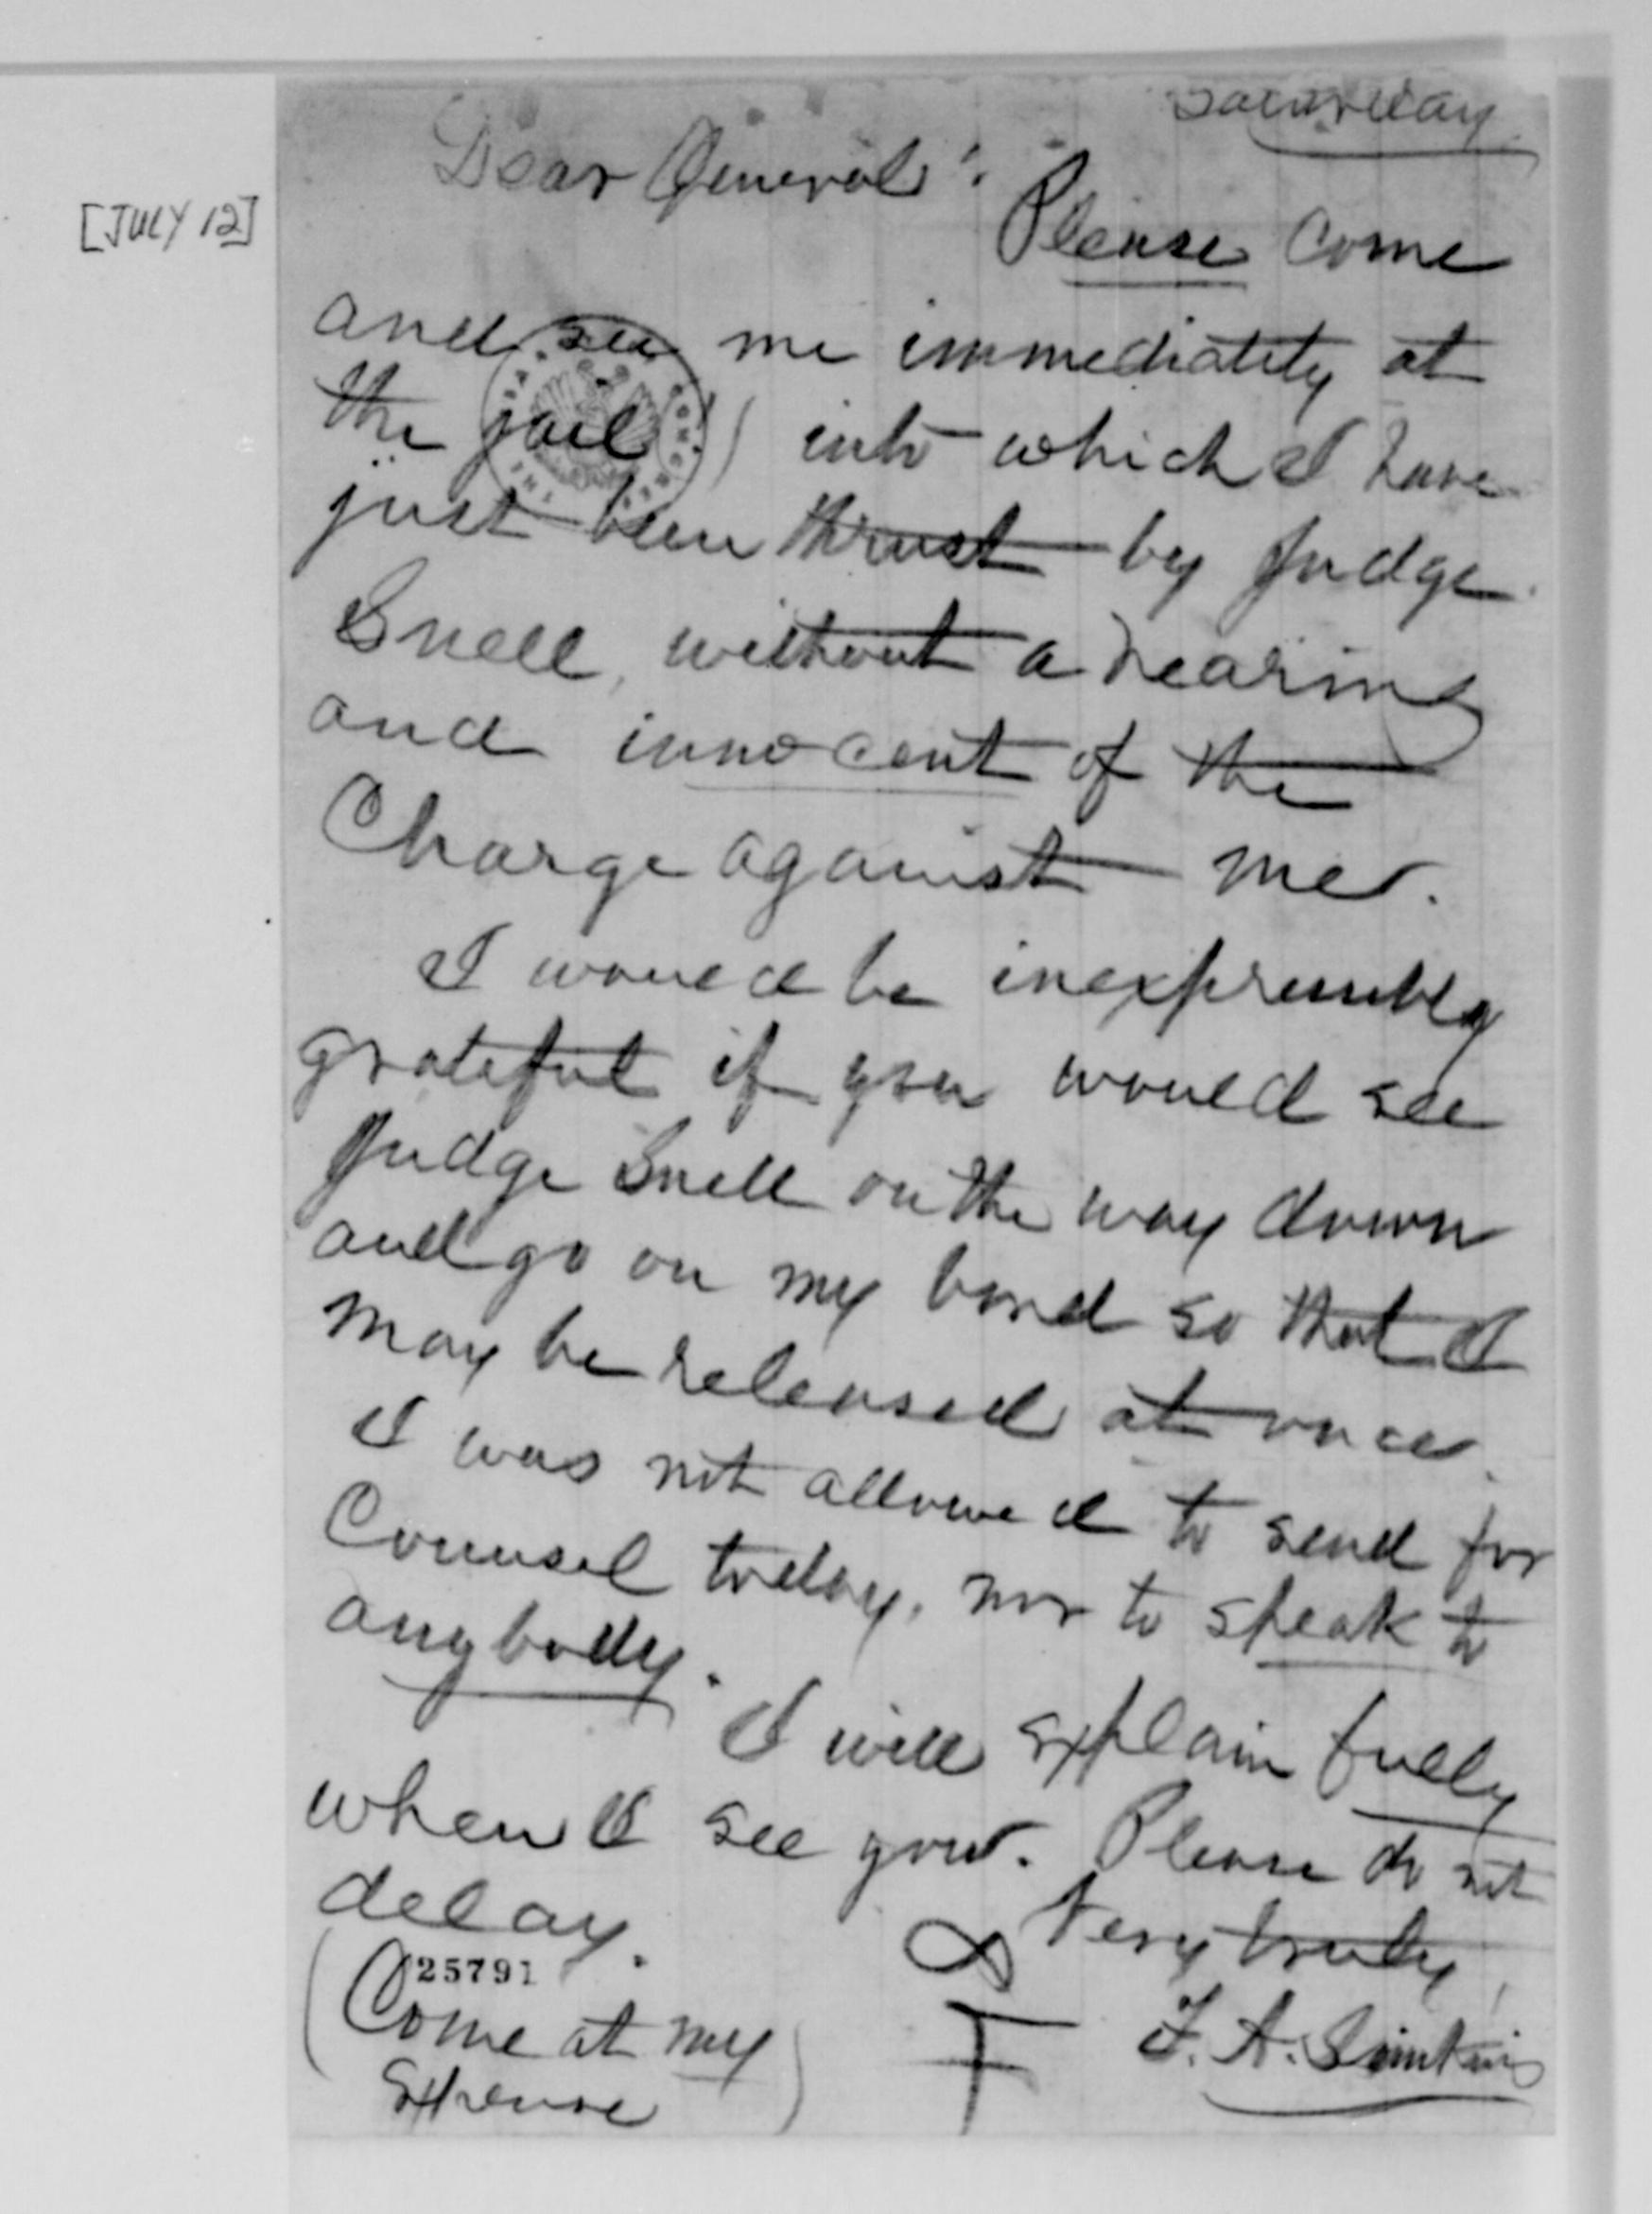 Saturday
Dear General:
[JULY 12]
Please come
and see me immediately at
the jail, into which I have
just been thrust by Judge
Snell, without a hearing
and innocent of the
Charge against me.
I would be inexpressibly
grateful if you would see
Judge Snell on the way down
and go on my bond so that I
may be released at once.
I was not allowed to send for
Counsel today, nor to speak to
anybody.
I will explain fully
when I see you. Please do not
delay.
Very truly,
F. A. Simkins
25791
(Come at my
Expense)